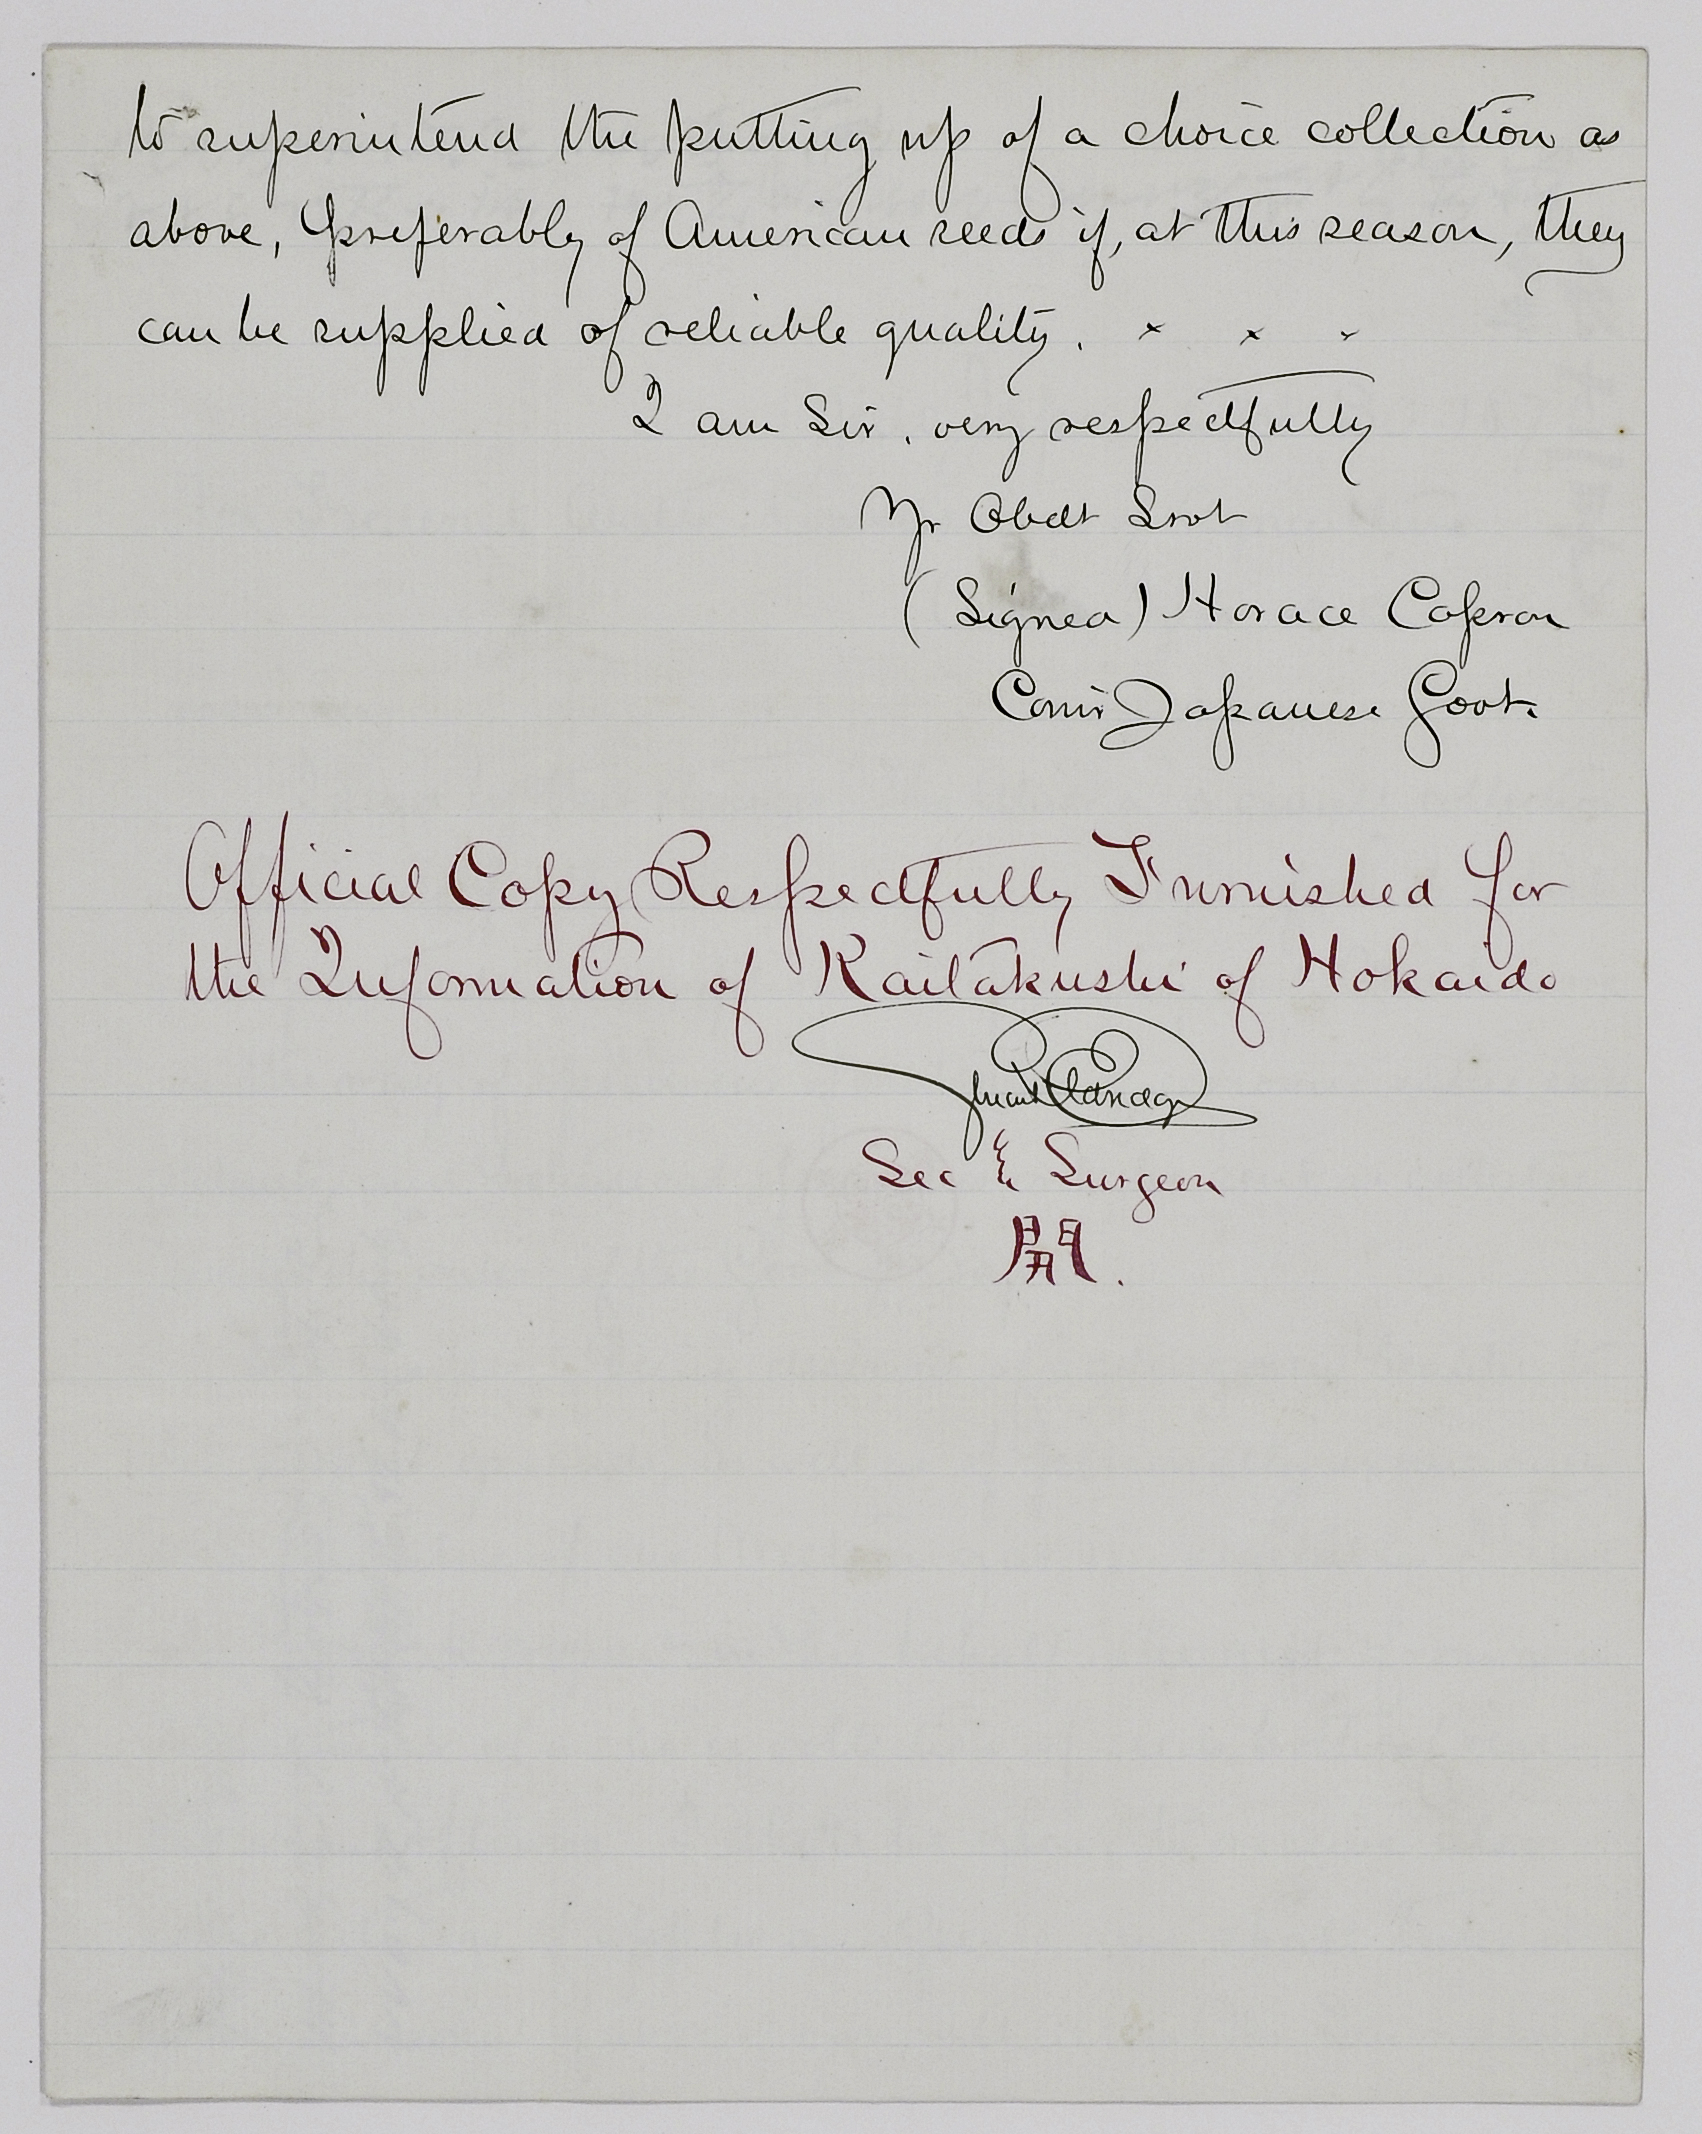 to superintend the putting up of a choice collection as
above, preferably of American seeds if, at this season, they
can be supplied of reliable quality. × × ×
I am Sir, very respectfully
Yr Obdt Srvt
(Signed) Horace Capron
Comr Japanese Govt.
Official Copy Respectfully Furnished for
the Information of Kaitakushi of Hokaido
Stuart Eldridge
Sec & Surgeon
開.